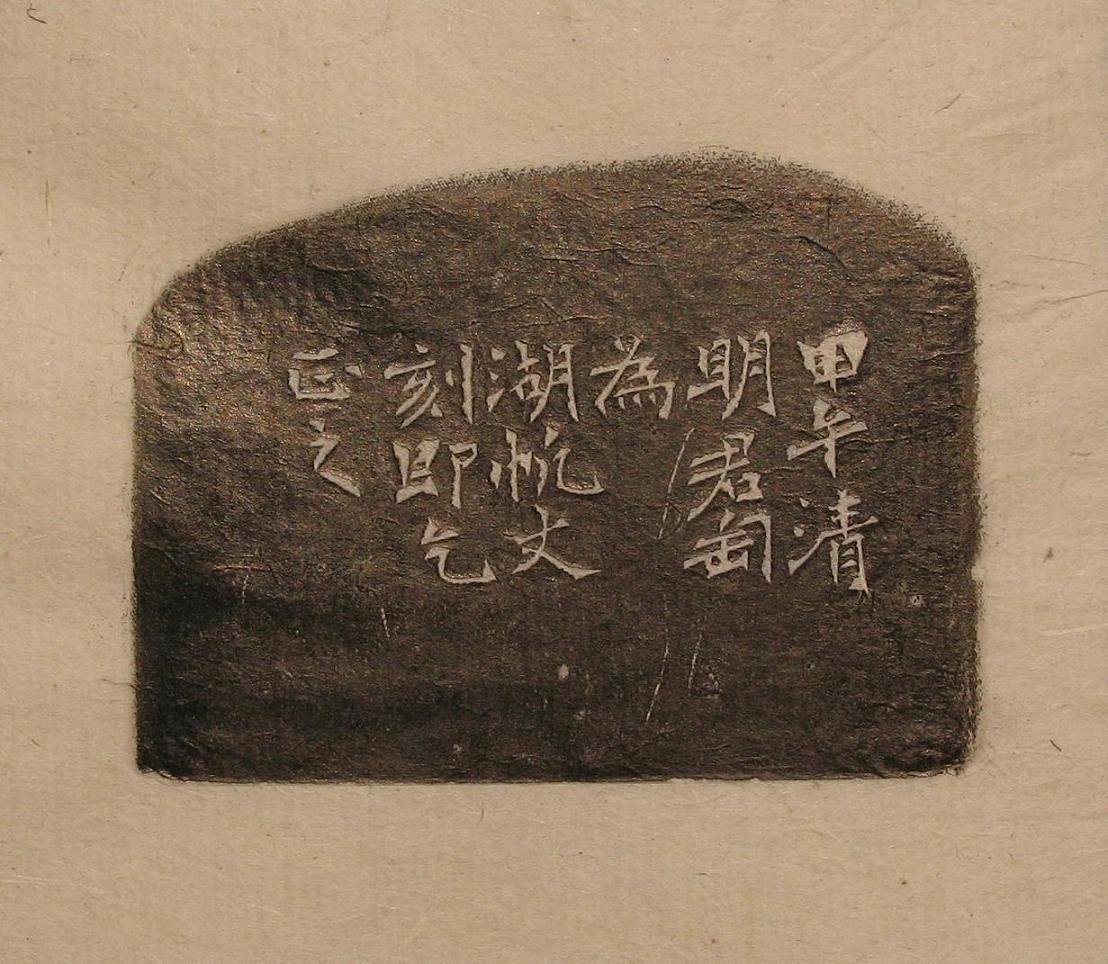 甲午清
明君匋
為
湖帆丈
刻即乞
正之